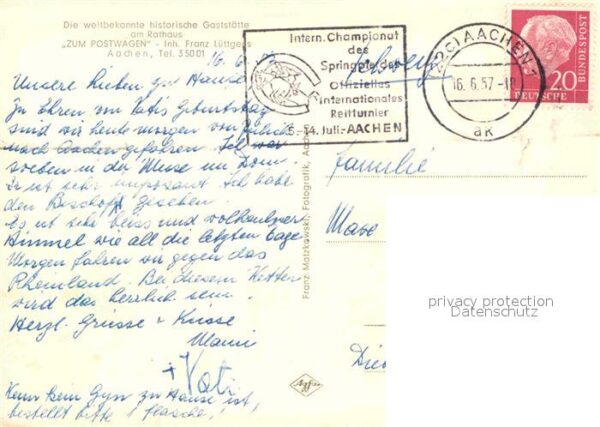 Die weltbekannte historische Gaststätte
am Rathaus
"ZUM POSTWAGEN" - Inh. Franz Lüttgens
Aachen, Tel. 35001
16. 6. 57
Unsere Lieben zu Hause
Zu Ehren von Vatis Geburtstag
sind wir heute morgen von Jülich
nach Aachen gefahren. Ich war
soeben in der Messe im Dom.
Er ist sehr imposant. Ich habe
den Bischoff gesehen.
Es ist sehr heiss und wolkenloser
Himmel wie all die letzten Tage
Morgen fahren wir gegen das
Rheinland. Bei diesem Wetter
wird das herrlich sein.
Herzl. Grüsse + Küsse
Mami
+ Vati
Wenn kein Gyn zu Hause ist,
bestellt bitte 1 Flasche!
Intern. Championat
des
Springreiter
Offizielles
internationales
Reitturnier
5.-14. Juli-AACHEN
Schweiz
(22c) AACHEN 1
16. 6. 57
ak
20
DEUTSCHE
BUNDESPOST
Familie
Franz Matzkowski, Fotografik, Aachen
Agfa
privacy protection
Datenschutz